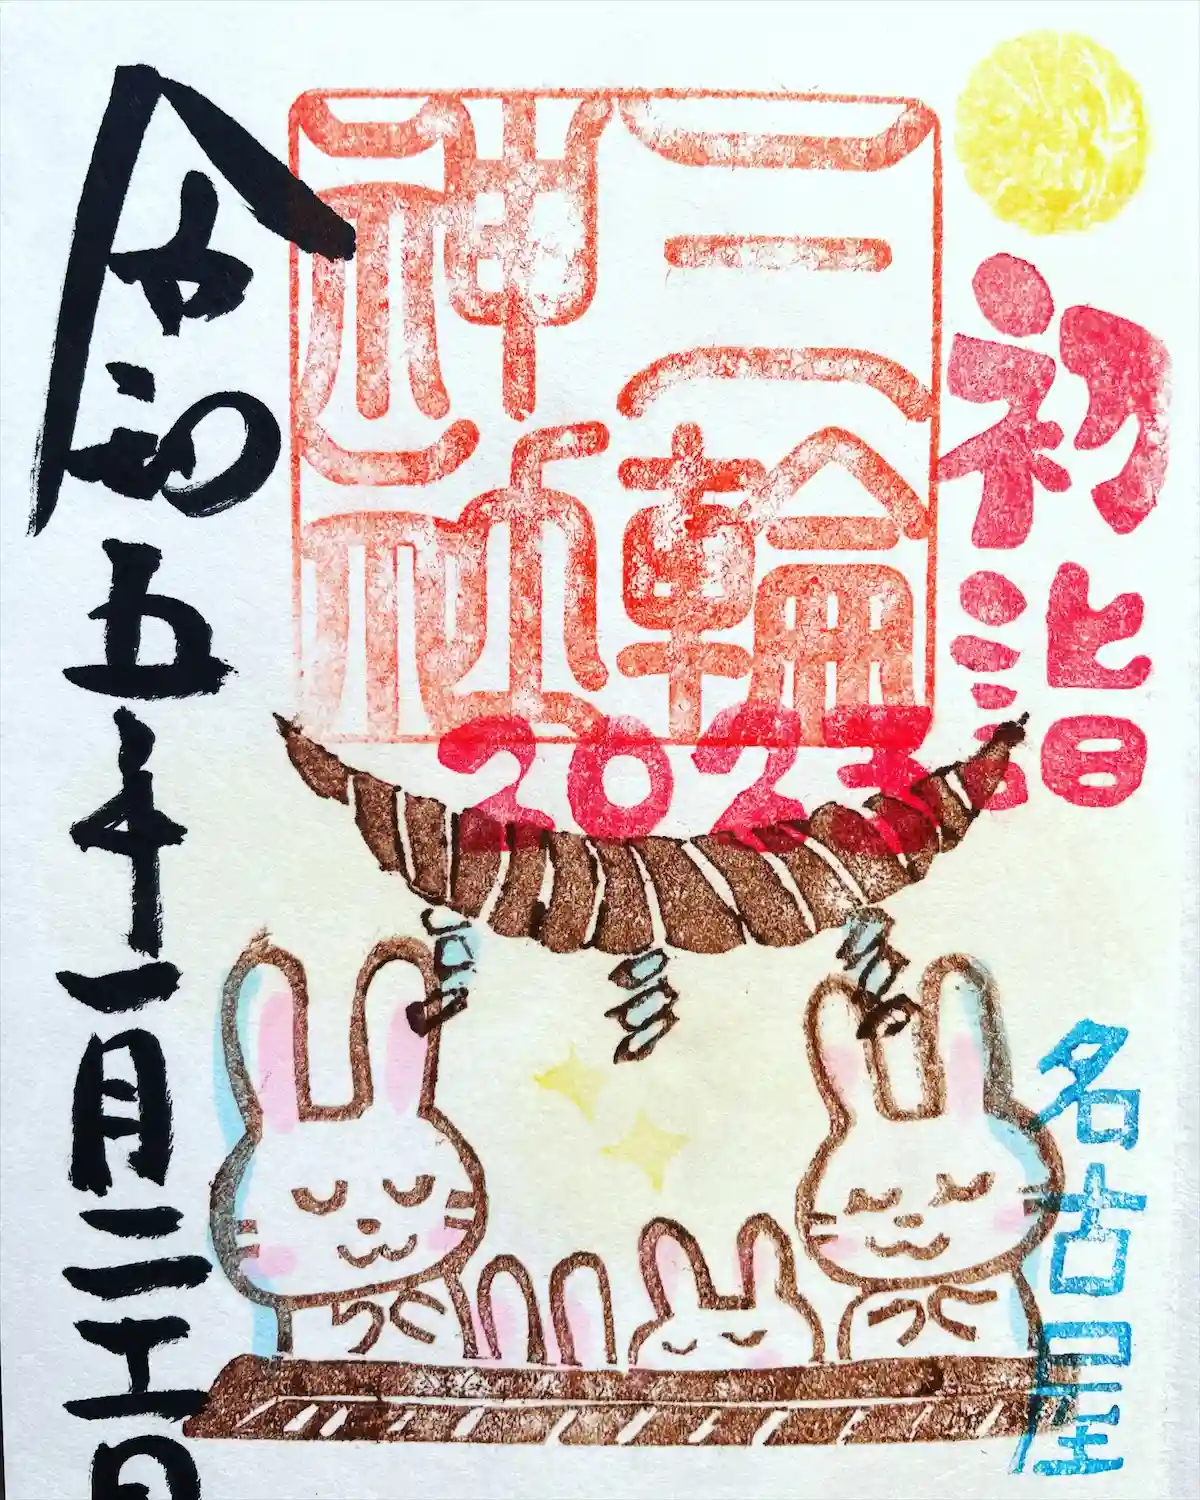 初詣
名古屋
三輪
神社
2023
令和五年一月